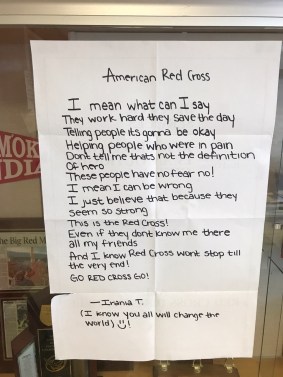 American Red Cross
I mean what can I say
They work hard they save the day
Telling people its gonna be okay
Helping people who were in pain
Dont tell me thats not the definition
Of hero
These people have no fear no!
I mean I can be wrong
I just believe that because they
seem so strong
This is the Red Cross!
Even if they dont know me there
all my friends
And I know Red Cross wont stop till
the very end!
GO RED CROSS GO!
—Irania T.
(I know you all will change the
world) !
MOK
NDI
The Big Red M